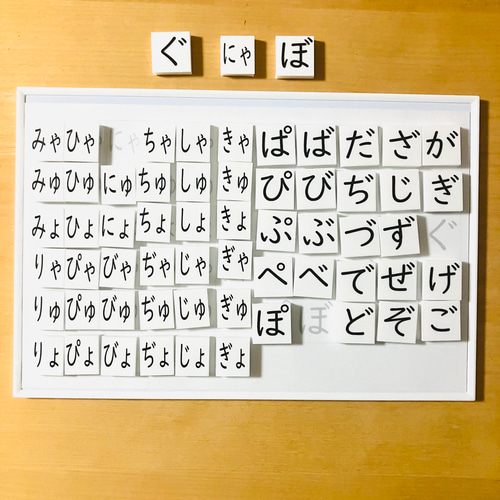 ぐ にゃ ぼ
みゃ ひゃ にゃ ちゃ しゃ きゃ ぱ ば だ ざ が
みゅ ひゅ にゅ ちゅ しゅ きゅ ぴ び ぢ じ ぎ
みょ ひょ にょ ちょ しょ きょ ぷ ぶ づ ず ぐ
りゃ ぴゃ びゃ ぢゃ じゃ ぎゃ ぺ べ で ぜ げ
りゅ ぴゅ びゅ ぢゅ じゅ ぎゅ ぽ ぼ ど ぞ ご
りょ ぴょ びょ ぢょ じょ ぎょ